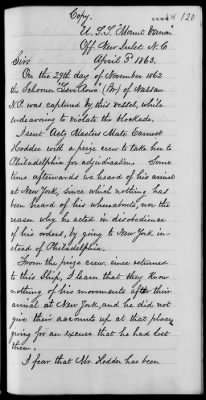 Copy.
120
U.S.S. "Mount Vernon"
Off New Inlet N.C.
April 3d 1863.
Sir:
On the 29th day of November 1862
the Schooner "Levi Rowe" (Br) of Nassau
N.P. was captured by this vessel, while
endeavoring to violate the blockade.
I sent Actg Masters Mate Earnest
Hodder with a prize crew to take her to
Philadelphia for adjudication. Some
time afterwards we heard of his arrival
at New York, since which nothing has
been heard of his whereabouts, nor the
reason why he acted in disobedience
of his orders, by going to New York in-
stead of Philadelphia.
From the prize crew, since returned
to this Ship, I learn that they know
nothing of his movements after their
arrival at New York, and he did not
give their accounts up at that place,
giving for an excuse that he had lost
them.
I fear that Mr. Hodder has been